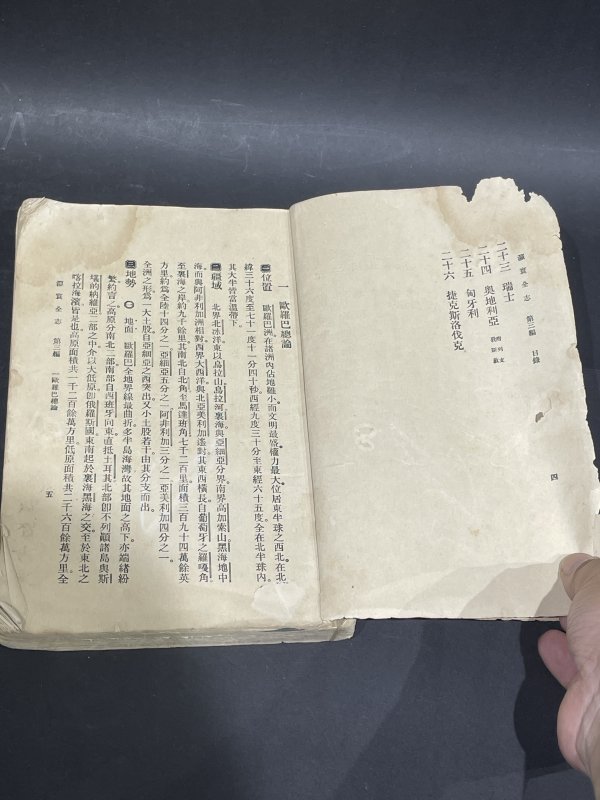 瀛寰全志　第三編　目錄
二十三　瑞士
二十四　奧地利亞
二十五　匈牙利
二十六　捷克斯洛伐克
四
一　歐羅巴總論
位置　歐羅巴洲。在諸洲內佔地雖小。而文明最盛。權力最大。位居東半球之西北。在北
緯三十六度至七十一度十一分四十秒。西經九度三十分至東經六十五度。全在北半球內。
其大半皆當溫帶下。
疆域　北界北冰洋。東以烏拉山烏拉河裏海。與亞細亞分界。南界高加索山黑海地中
海。而與阿非利加洲相對。西界大西洋。與北亞美利加遙對。其東西橫長。自葡萄牙之羅嘎角
至裏海之岸。約九千餘里。其南北自北角至馬達班角。七千二百里。面積三百九十四萬餘英
方里。約爲全陸十四分之一。亞細亞五分之一。阿非利加三分之一。亞美利加四分之一。
全洲之形。爲一大土股。自亞細亞之西突出。又小土股若干。由其分支而出。
地勢　一　地面　歐羅巴全地界線最曲折。多半島海灣。故其地面之高下。亦端緒紛
繁。約言之。高原分南北二部。南部自西班牙向東。直抵土耳其。北部卽不列顚諸島。與斯
堪的納維亞。二部之中。介以大低原。卽俄羅斯國東南。起於裏海黑海之交。至於東北之
喀拉海濱皆是也。高原面積共一千二百餘萬方里。低原面積共二千六百餘萬方里。全
瀛寰全志　第三編　一歐羅巴總論
五